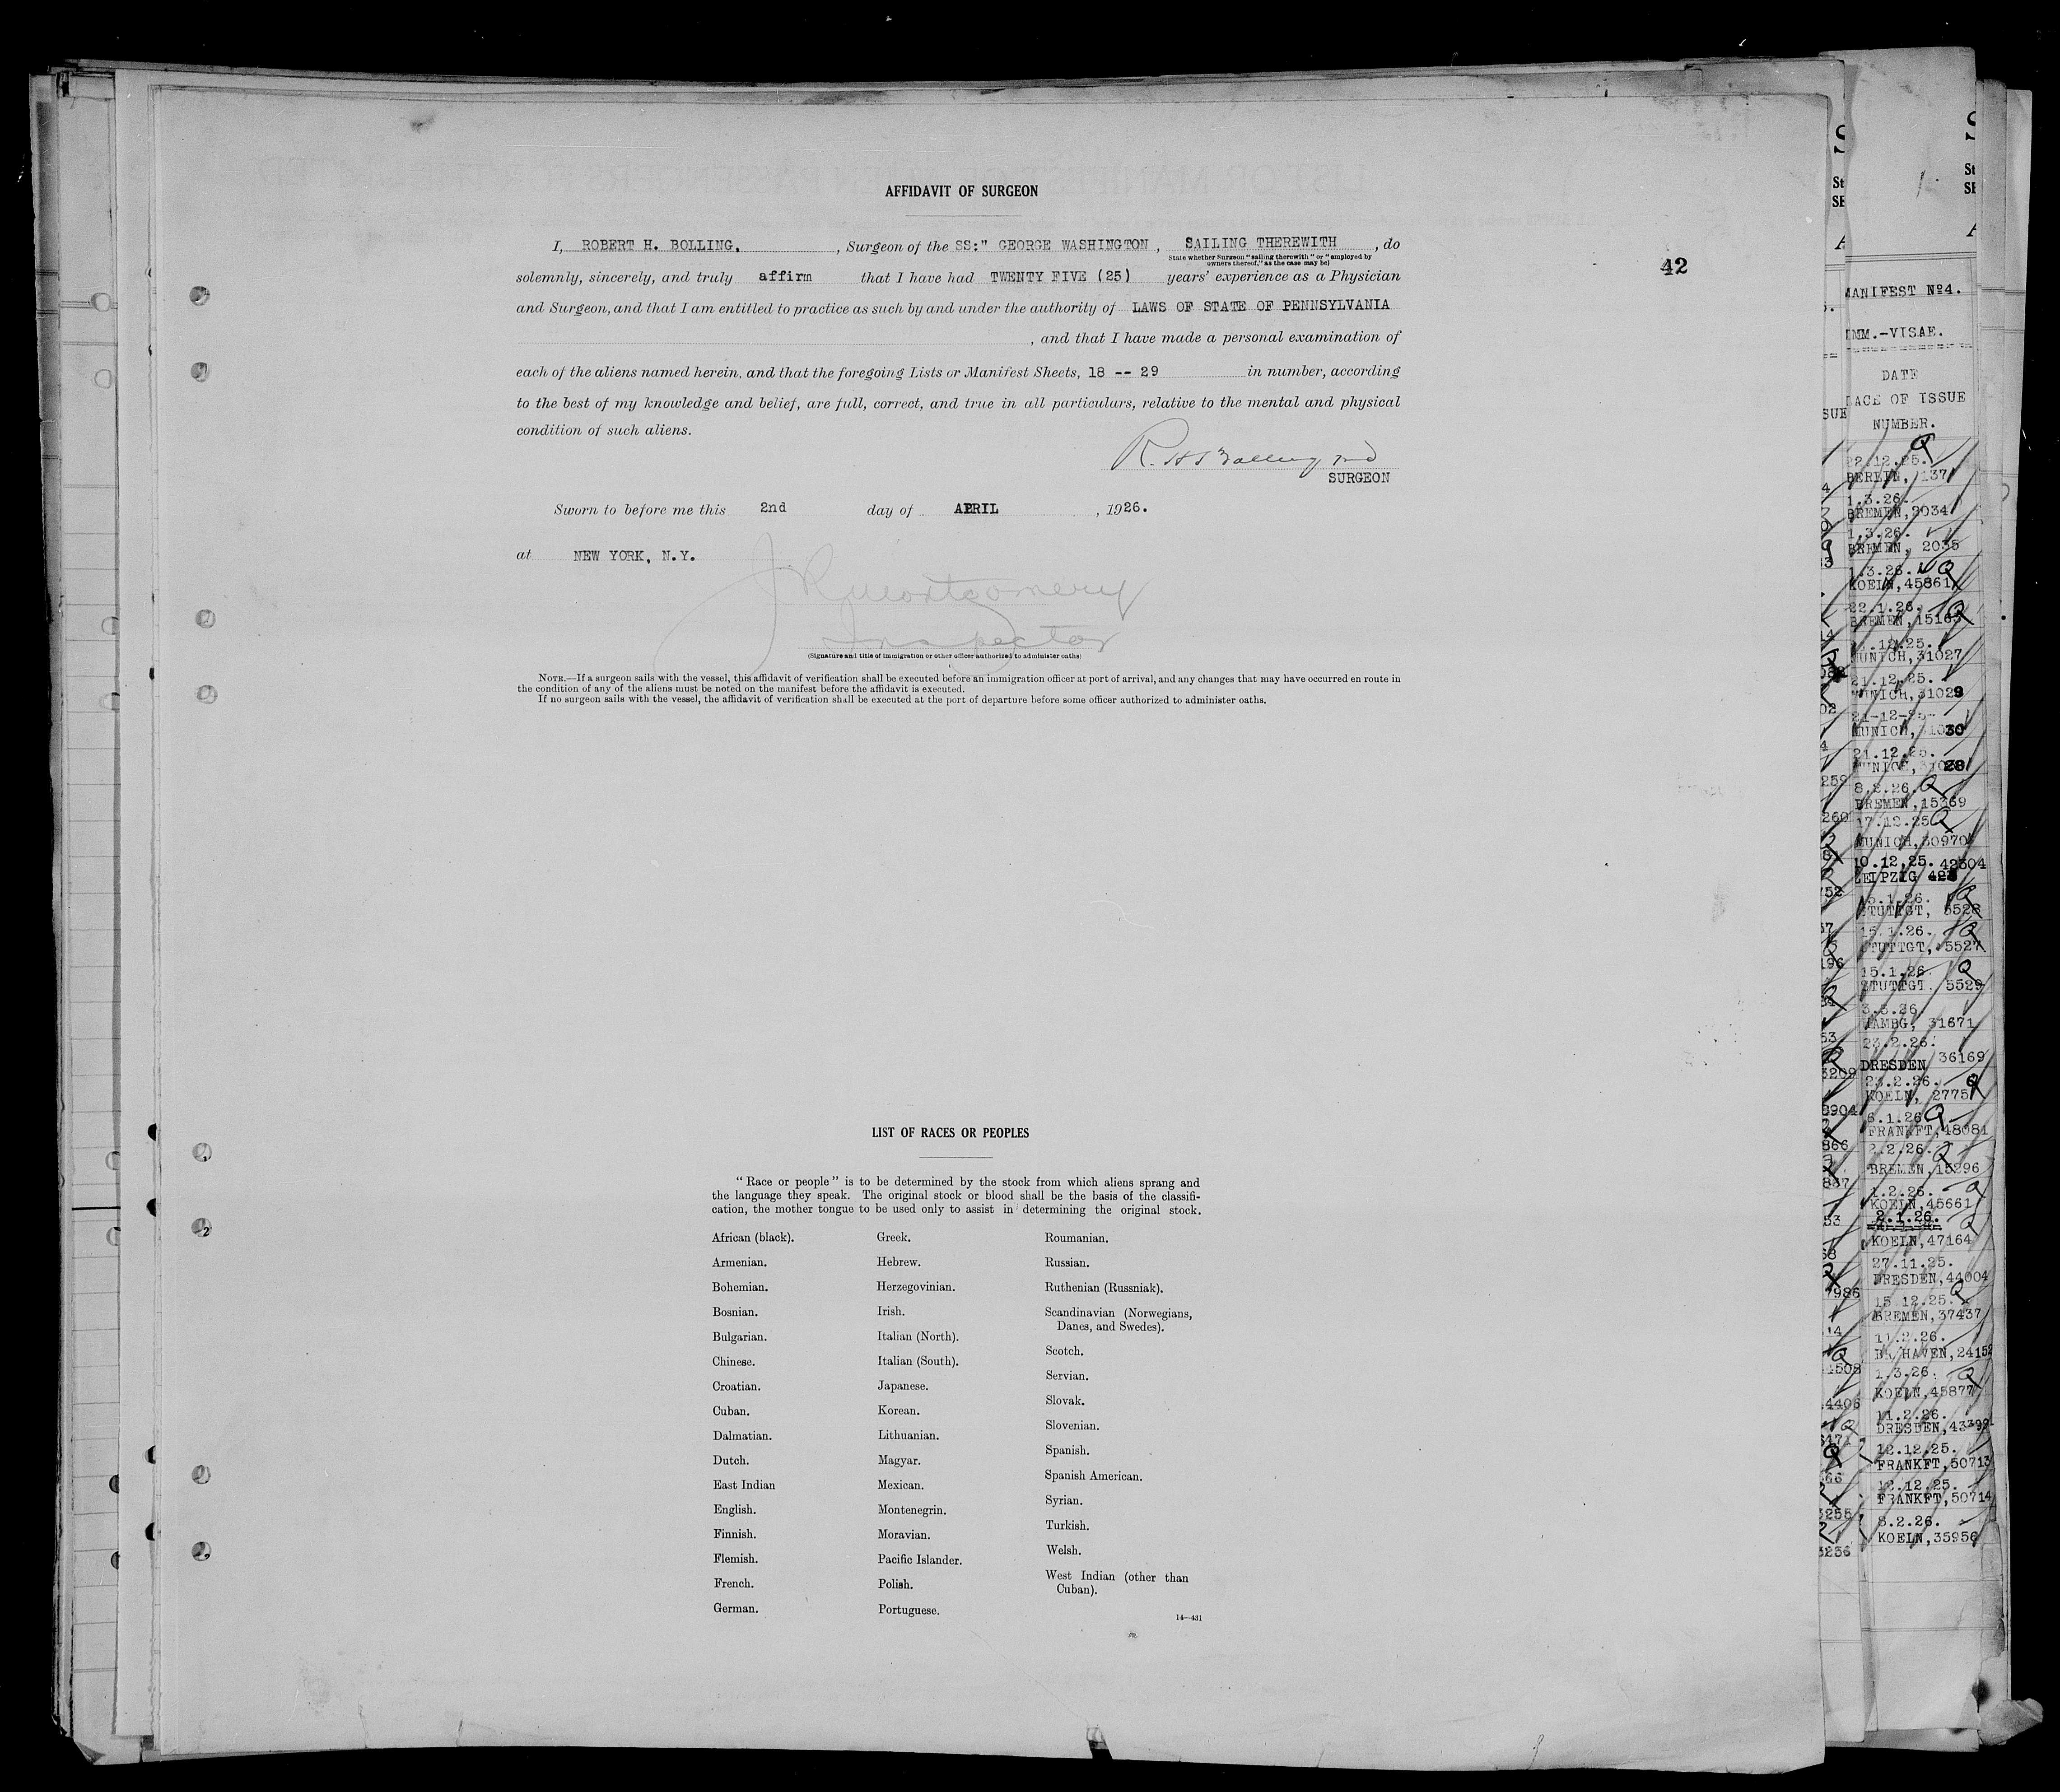 AFFIDAVIT OF SURGEON
I, ROBERT H. BOLLING, , Surgeon of the SS:" GEORGE WASHINGTON , SAILING THEREWITH , do
State whether Surgeon "sailing therewith" or "employed by
owners thereof," as the case may be)
solemnly, sincerely, and truly affirm that I have had TWENTY FIVE (25) years' experience as a Physician
42
and Surgeon, and that I am entitled to practice as such by and under the authority of LAWS OF STATE OF PENNSYLVANIA
, and that I have made a personal examination of
each of the aliens named herein, and that the foregoing Lists or Manifest Sheets, 18 -- 29 in number, according
to the best of my knowledge and belief, are full, correct, and true in all particulars, relative to the mental and physical
condition of such aliens.
R. H. Bolling MD
SURGEON
Sworn to before me this 2nd day of APRIL , 1926.
at NEW YORK, N.Y.
J R Montgomery
Inspector
(Signature and title of immigration or other officer authorized to administer oaths)
NOTE.—If a surgeon sails with the vessel, this affidavit of verification shall be executed before an immigration officer at port of arrival, and any changes that may have occurred en route in
the condition of any of the aliens must be noted on the manifest before the affidavit is executed.
If no surgeon sails with the vessel, the affidavit of verification shall be executed at the port of departure before some officer authorized to administer oaths.
LIST OF RACES OR PEOPLES
"Race or people" is to be determined by the stock from which aliens sprang and
the language they speak. The original stock or blood shall be the basis of the classifi-
cation, the mother tongue to be used only to assist in determining the original stock.
African (black).
Armenian.
Bohemian.
Bosnian.
Bulgarian.
Chinese.
Croatian.
Cuban.
Dalmatian.
Dutch.
East Indian
English.
Finnish.
Flemish.
French.
German.
Greek.
Hebrew.
Herzegovinian.
Irish.
Italian (North).
Italian (South).
Japanese.
Korean.
Lithuanian.
Magyar.
Mexican.
Montenegrin.
Moravian.
Pacific Islander.
Polish.
Portuguese.
Roumanian.
Russian.
Ruthenian (Russniak).
Scandinavian (Norwegians,
Danes, and Swedes).
Scotch.
Servian.
Slovak.
Slovenian.
Spanish.
Spanish American.
Syrian.
Turkish.
Welsh.
West Indian (other than
Cuban).
14—431
MANIFEST Nº4.
IMM.-VISAE.
DATE
LACE OF ISSUE
NUMBER.
22.12.25.
BERLIN, 137
1.3.26.
BREMEN, 2034
1.3.26.
BREMEN, 2035
1.3.26.
KOELN, 45861
22.1.26.
BREMEN, 15163
MUNICH, 31027
21.12.25.
MUNICH, 31029
21-12-25-
MUNICH, 31030
21.12.25.
8.2.26.
BREMEN, 15369
17.12.25
MUNICH, 30970
10.12.25. 42304
LEIPZIG
15.1.26.
STUTTGT, 5528
15.1.26.
STUTTGT, 5527
15.1.26
STUTTGT, 5529
3.3.26.
HAMBG, 31671
23.2.26.
DRESDEN 36169
23.2.26.
KOELN, 2775
6.1.26
FRANKFT, 48081
2.2.26.
BREMEN, 15296
1.2.26.
KOELN, 45661
2.1.26.
KOELN, 47164
27.11.25.
DRESDEN, 44004
15.12.25.
BREMEN, 37437
11.2.26.
BR.HAVEN, 24152
1.3.26.
KOELN, 45877
11.2.26.
DRESDEN, 43399
12.12.25.
FRANKFT, 50713
12.12.25.
FRANKFT, 50714
8.2.26.
KOELN, 35956